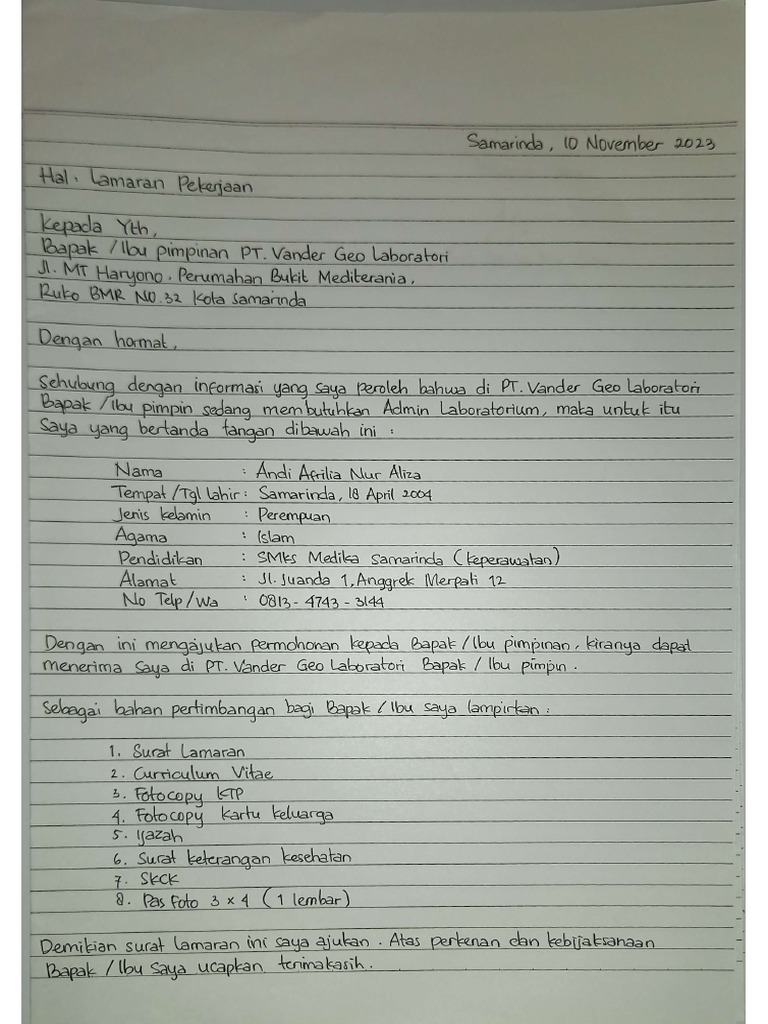 Samarinda, 10 November 2023
Hal : Lamaran Pekerjaan
Kepada Yth,
Bapak / Ibu pimpinan PT. Vander Geo Laboratori
Jl. MT Haryono. Perumahan Bukit Mediterania,
Ruko BMR NO.32 Kota Samarinda
Dengan hormat,
Sehubung dengan informasi yang saya peroleh bahwa di PT. Vander Geo Laboratori
Bapak / Ibu pimpin sedang membutuhkan Admin Laboratorium, maka untuk itu
Saya yang bertanda tangan dibawah ini :
Nama : Andi Afrilia Nur Aliza
Tempat / Tgl lahir : Samarinda, 18 April 2004
Jenis kelamin : Perempuan
Agama : Islam
Pendidikan : SMKs Medika Samarinda (keperawatan)
Alamat : Jl. Juanda 1, Anggrek Merpati 12
No Telp / Wa : 0813 - 4743 - 3144
Dengan ini mengajukan permohonan kepada Bapak / Ibu pimpinan, kiranya dapat
menerima saya di PT. Vander Geo Laboratori Bapak / Ibu pimpin.
Sebagai bahan pertimbangan bagi Bapak / Ibu saya lampirkan :
1. Surat Lamaran
2. Curriculum Vitae
3. Fotocopy KTP
4. Fotocopy Kartu Keluarga
5. Ijazah
6. Surat keterangan kesehatan
7. SKCK
8. Pas Foto 3 x 4 (1 lembar)
Demikian surat lamaran ini saya ajukan. Atas perkenan dan kebijaksanaan
Bapak / Ibu saya ucapkan terimakasih.